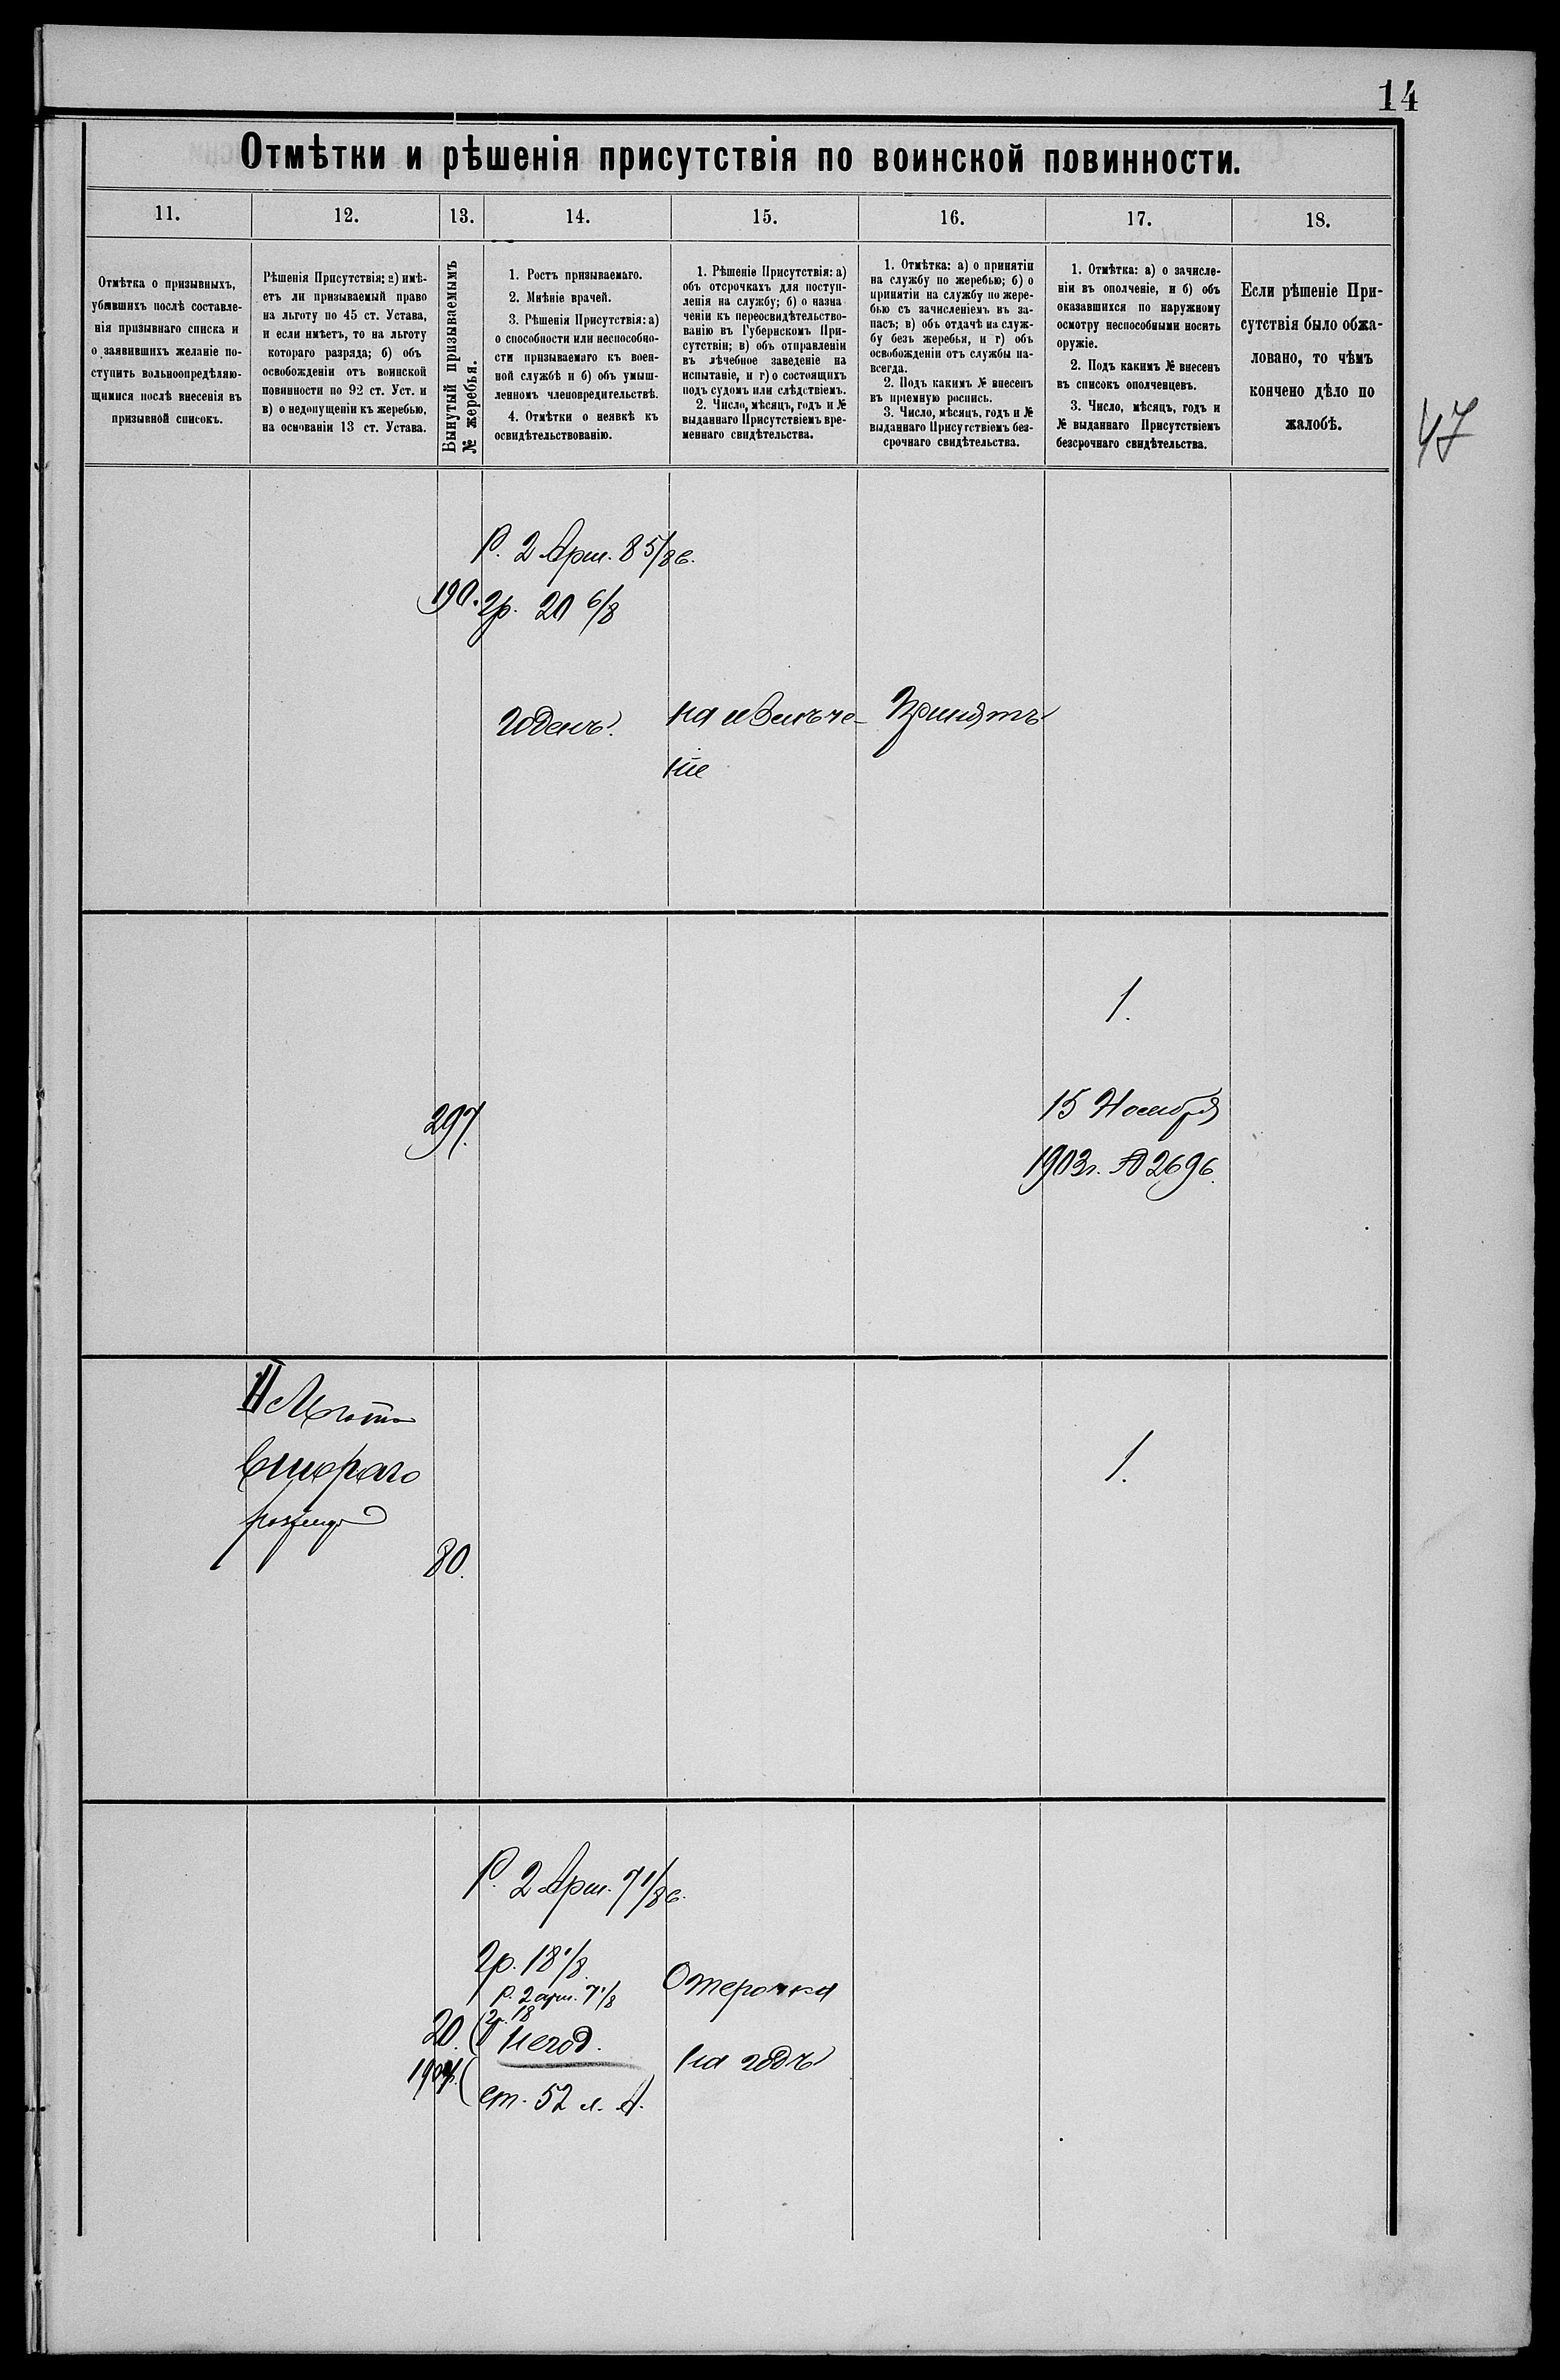 14
Отмѣтки и рѣшенія присутствія по воинской повинности.
11. 12. 13. 14. 15. 16. 17. 18.
Отмѣтка о призывныхъ,
убывшихъ послѣ составле-
нія призывнаго списка и
о заявившихъ желаніе по-
ступить вольноопредѣляю-
щимися послѣ внесенія въ
призывной списокъ.
Рѣшенія Присутствія: а) имѣ-
етъ ли призываемый право
на льготу по 45 ст. Устава,
и если имѣетъ, то на льготу
котораго разряда; б) объ
освобожденіи отъ воинской
повинности по 92 ст. Уст. и
в) о недопущеніи къ жеребью,
на основаніи 13 ст. Устава.
Вынутый призываемымъ
№ жеребья.
1. Ростъ призываемаго.
2. Мнѣніе врачей.
3. Рѣшенія Присутствія: а)
о способности или неспособно-
сти призываемаго къ воен-
ной службѣ и б) объ умыш-
ленномъ членовредительствѣ.
4. Отмѣтки о неявкѣ къ
освидѣтельствованію.
1. Рѣшеніе Присутствія: а)
объ отсрочкахъ для поступ-
ленія на службу; б) о назна
ченіи къ переосвидѣтельство-
ванію въ Губернскомъ При-
сутствіи; в) объ отправленіи
въ лѣчебное заведеніе на
испытаніе, и г) о состоящихъ
подъ судомъ или слѣдствіемъ.
2. Число, мѣсяцъ, годъ и №
выданнаго Присутствіемъ вре-
меннаго свидѣтельства.
1. Отмѣтка: а) о принятіи
на службу по жеребью; б) о
принятіи на службу по жере-
бью съ зачисленіемъ въ за-
пасъ; в) объ отдачѣ на служ-
бу безъ жеребья, и г) объ
освобожденіи отъ службы на-
всегда.
2. Подъ какимъ № внесенъ
въ пріемную роспись.
3. Число, мѣсяцъ, годъ и №
выданнаго Присутствіемъ без-
срочнаго свидѣтельства.
1. Отмѣтка: а) о зачисле-
ніи въ ополченіе, и б) объ
оказавшихся по наружному
осмотру неспособными носить
оружіе.
2. Подъ какимъ № внесенъ
въ списокъ ополченцевъ.
3. Число, мѣсяцъ, годъ и
№ выданнаго Присутствіемъ
безсрочнаго свидѣтельства.
Если рѣшеніе При-
сутствія было обжа-
ловано, то чѣмъ
кончено дѣло по
жалобѣ.
47
Р. 2 Арш. 8 5/8 в.
190. Гр. 20 6/8
Годенъ. на излѣче- Принятъ
ніе
1.
297.
15 Ноября
1903 г. № 2696.
II Льгота
Втораго
разряда
1.
80.
Р. 2 Арш. 7 1/8 в.
Гр. 18 1/8.
Р. 2 арш. 7 1/8
Отсрочка
Гр. 18
20. Негод.
на годъ
1904 г.
ст. 52 л. А.